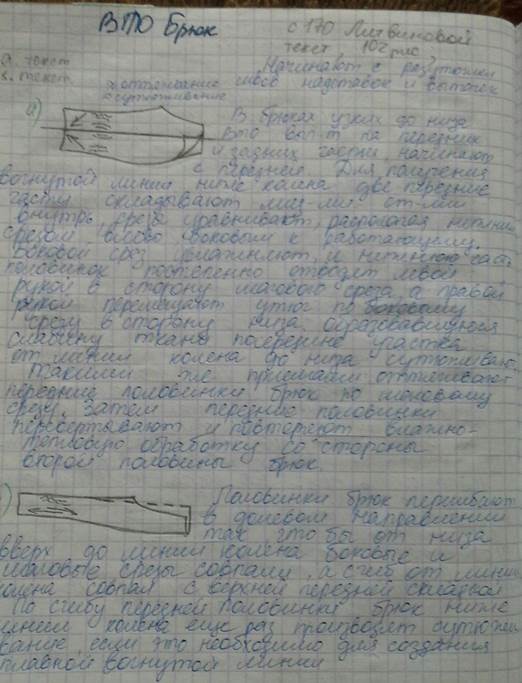 ВТО Брюк
с 170 Литвиновой
текст 102 рис
Начинают с разутюжки
швов надставок и вытачек
оттягивание
сутюживание
а)
В брюках узких до низа
ВТО вып-т на передних
и задних частях, начинают
с передней. Для получения
вогнутой линии ниже колена две передние
части складывают лиц-ми ст-ми
внутрь, срезы уравнивают, располагая нижним
срезом влево боковым к работающему.
Боковой срез увлажняют, и нижнюю часть
половинок постепенно отводят левой
рукой в сторону шагового среза а правой
рукой перемещают утюг по боковому
срезу в сторону низа образовавшуюся
слабину ткани посередине участка
от линии колена до низа сутюживают.
Такими же приемами оттягивают
передние половинки брюк по шаговому
срезу. Затем передние половинки
перевертывают и повторяют влажно-
тепловую обработку со стороны
второй половины брюк.
Половинки брюк перегибают
в долевом направлении
так что бы от низа
вверх до линии колена боковые и
шаговые срезы совпали, а сгиб от линии
колена совпал с верхней передней складкой
По сгибу передней половинки брюк ниже
линии колена еще раз производят сутюжи
вание, если это необходимо для создания
плавной вогнутой линии